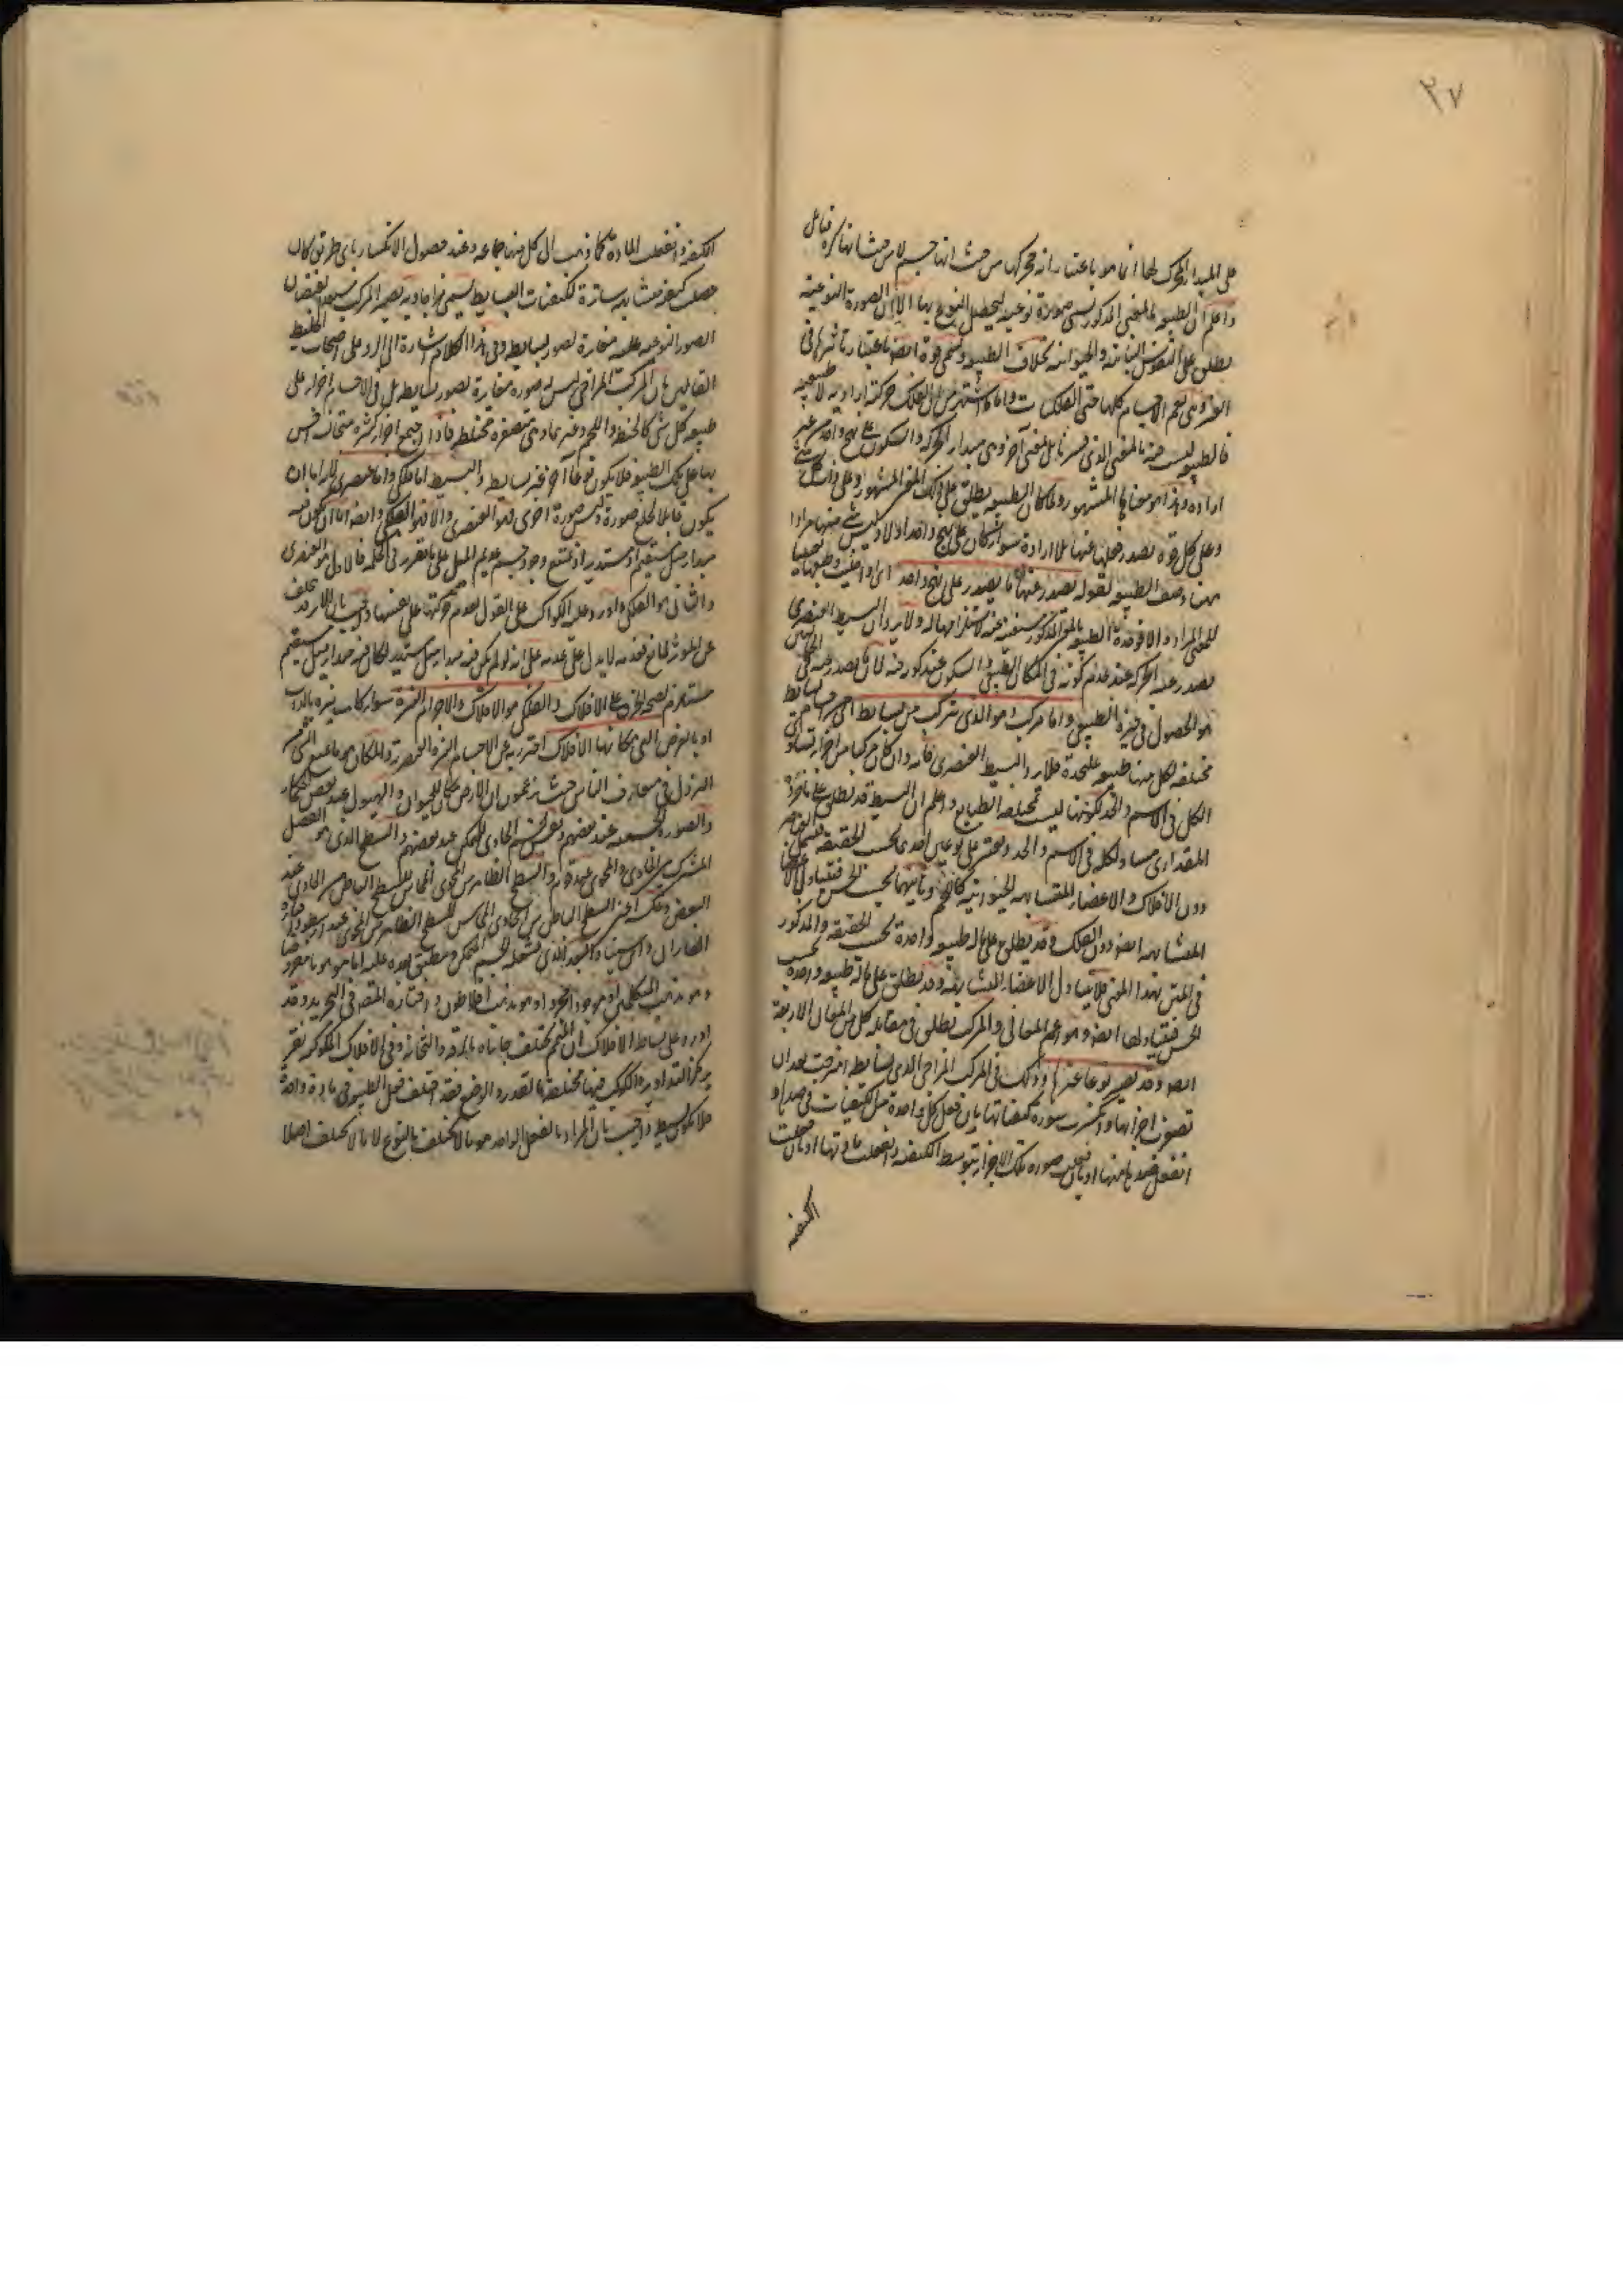 ٣٧
على المبدأ المحرك لها انما هو باعتبار انه محركها من حيث انها جسم لا من حيث انها كرة فتأمل
واعلم ان الطبيعة بالمعنى المذكور يسمى صورة نوعية ليحصل النوع بها الا ان الصورة النوعية
يطلق على النفوس النباتية والحيوانية بخلاف الطبيعة ويسمى قوة ايضا باعتبار تاثيرها فى
الغير وهى تعم الاجسام كلها حتى الفلكيات واما ما اشتهر من ان الفلك حركته ارادية لا طبيعية
فالطبيعة ليست فيه بالمعنى الذى فسر بل بمعنى آخر وهى مبدأ الحركة والسكون على نهج واحد من غير
ارادة وهذا هو معناها المشهور ولما كان الطبيعة يطلق على ذلك المعنى المشهور وعلى ذات كل شئ
وعلى كل قوة يصدر فعلها عنها بلا ارادة سواء كان على نهج واحد اولا وليس شئ منها مرادا
ههنا وصف الطبيعة بقوله يصدر عنها ما يصدر على نهج واحد
للمعنى المراد والا فوحدة الطبيعة بالمعنى المذكور مستغنية عنه لاستلزامها له ولا يرد ان البسيط العنصرى
يصدر عنه الحركة عند عدم كونه فى المكان الطبيعى والسكون عند كونه فيه لان ما يصدر عنه فى الحالين
هو الحصول فى حيزه الطبيعى واما مركب هو الذى تركب من بسايط اى من اجسام
مختلفة لكل منها طبيعة عليحدة فلا يرد البسيط العنصرى فانه وان كان مركبا من اجزاء تساوى
الكل فى الاسم والحد لكونها ليست مختلفة الطبايع واعلم ان البسيط قد يطلق على ما جزؤه
المقدارى مساو لكله فى الاسم والحد
دون الافلاك والاعضاء المتشابهة الحيوانية كاللحم وثانيهما بحسب الحس فيتناول الاعضاء
المتشابهة ايضا دون الفلك وقد يطلق على ما له طبيعة واحدة بحسب الحقيقة والمذكور
فى المتن بهذا المعنى فلا يتناول الاعضاء المتشابهة وقد يطلق على ما له طبيعة واحدة بحسب
الحس فيتناولها ايضا وهو اعم المعانى والمركب يطلق فى مقابلة كل من المعانى الاربعة
ايضا وقد يصير نوعا عنها وذلك فى المركب المزاجى الذى بسايطه امتزجت بعد ان
تصغرت اجزائها وانكسرت سورة كيفياتها بان فعل كل واحدة من الكيفيات فى ضدها و
انفعل ضدها منها او بان فعلت صورة تلك الاجزاء بتوسط الكيفية وانفعلت مادتها او بان فعلت
الكيفية
الكيفية وانفعلت المادة كما ذهب الى كل منها جماعة وعند حصول الانكسار باى طريق كان
حصلت كيفية متشابهة
الصور النوعية عليه مغايرة لصور بسايطه وفى هذا الكلام اشارة الى الرد على اصحاب الخليط
القائلين بان المركب المزاجى ليس له صورة مغايرة لصور بسايطه بل فى الاجسام اجزاء على
طبيعة كل شئ كالحنطة واللحم وغيرهما وهى متصغرة مختلطة فاذا اجتمع اجزاء كثيرة متجانسة احس
بها على تلك الطبيعة فلا يكون نوعا آخر غير بسايطه والبسيط اما فلكى واما عنصرى لانه اما ان
يكون قابلا لخلع صورة ولبس صورة اخرى فهو العنصرى والا فهو الفلكى وايضا اما ان يكون فيه
مبدأ ميل مستقيم او مستدير اذ يمتنع وجود جسم عديم الميل على ما تقرر فى الحكمة فالاول هو العنصرى
والثانى هو الفلكى واورد عليه الكواكب على القول بعدم حركتها على نفسها واجيب بان الاثر قد يتخلف
عن المؤثر لمانع فعدمه لا يدل على عدمه على انه لو لم يكن فيه مبدأ ميل مستدير لكان فيه مبدأ ميل مستقيم
مستلزم لصحة الخرق على الافلاك والفلكى هو الافلاك والاجرام النيرة سواء كانت نيره بالذات
او بالعرض التى مكانها الافلاك احترز به عن الاجسام النيرة العنصرية والمكان هو ما يمنع الشئ من
النزول فى متعارف الناس حيث يزعمون ان الارض مكان للحيوان والهيولى عند بعض الحكماء
والصورة الجسمية عند بعضهم
المشترك بين الحاوى والمحوى عند قوم والسطح الظاهر من المحوى المماس للسطح الباطن من الحاوى عند
البعض وعكسه اعنى السطح الباطن من الحاوى المماس للسطح الظاهر من المحوى عند ارسطو واختاره
الفارابى وابن سينا والبعد الذى يشغله الجسم المتمكن وينطبق بعده عليه اما موهوما مفروضا
وهو مذهب المتكلمين او موجودا مجردا وهو مذهب افلاطون واختاره المص فى التجريد وقد
اورد على بساطة الافلاك ان المتمم مختلف جانباه بالرقة والثخانة وفى الافلاك المكوكبة نقر
يركز التداوير والكواكب فيها مختلفة بالقدر والوضع فقد اختلف فعل الطبيعة فى مادة واحدة
فلا يكون بسيطة واجيب بان المراد بالفعل الواحد هو ما لا يختلف بالنوع لا ما لا يختلف اصلا